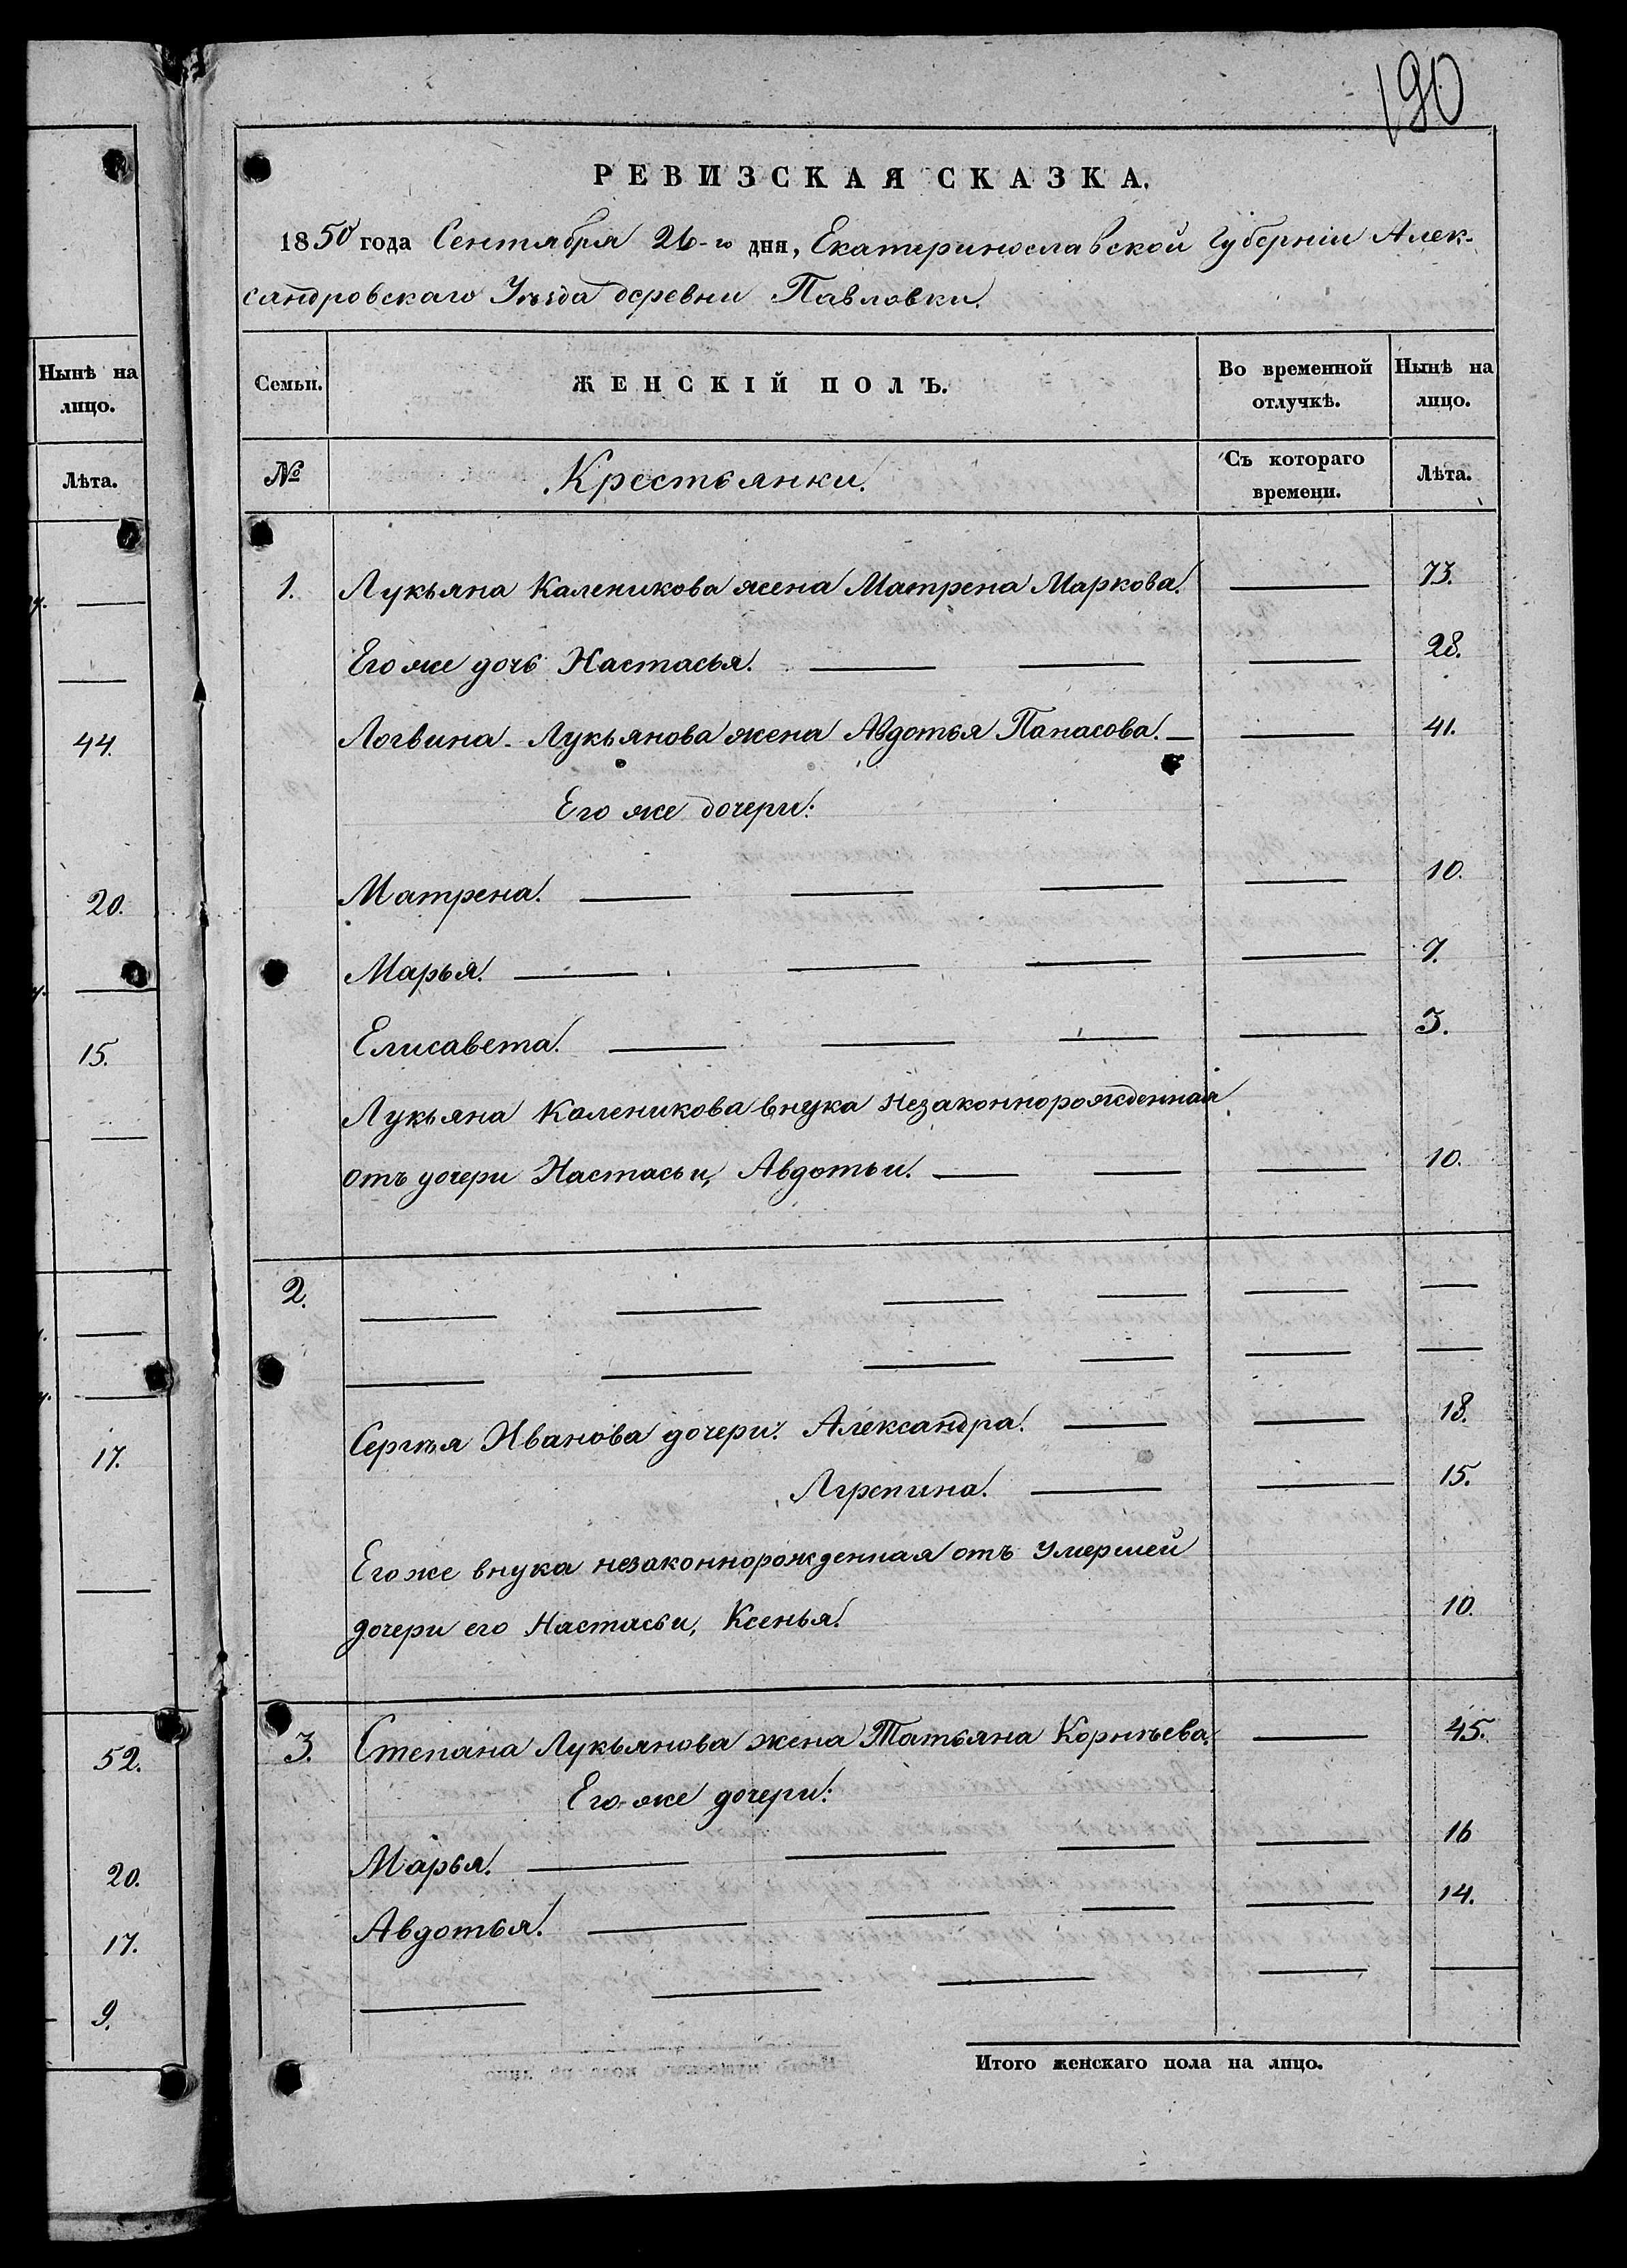 190
РЕВИЗСКАЯ СКАЗКА.
1850 года Сентября 26-го дня, Екатеринославской Губерніи Алек-
сандровскаго Уѣзда деревни Павловки.
Нынѣ на
лицо.
Лѣта.
44.
20.
15.
17.
52.
20.
17.
9.
Семьи. ЖЕНСКІЙ ПОЛЪ. Во временной отлучкѣ. Нынѣ на лицо.
№ Крестьянки. Съ котораго времени. Лѣта.
1. Лукьяна Каленикова жена Матрена Маркова. — 73.
Его же дочь Настасья. — — — 28.
Логвина Лукьянова жена Авдотья Панасова. — — 41.
Его же дочери:
Матрена. — — — — 10.
Марья. — — — — 7.
Елисавета. — — — — 3.
Лукьяна Каленикова внука незаконнорожденная
отъ дочери Настасьи, Авдотьи. — — — 10.
2. — — — — — —
— — — — — —
Сергѣя Иванова дочери: Александра. — — 18.
Агрепина. — — 15.
Его же внука незаконнорожденная отъ умершей
дочери его Настасьи, Ксенья. 10.
3. Степана Лукьянова жена Татьяна Корнѣева. — 45.
Его же дочери:
Марья. — — — — 16
Авдотья. — — — — 14.
— — — — —
Итого женскаго пола на лицо.